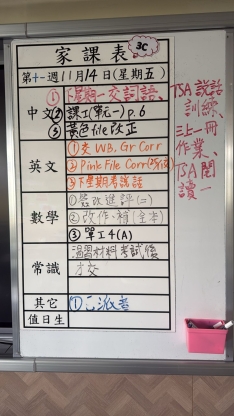 家課表
3C
第十一週11月14日(星期五)
中文
①下星期一交詞語、TSA說話訓練、三上一冊作業、TSA閱讀一
②課工(單元一) p.6
③黃色file改正
英文
①交 WB, Gr Corr
②Pink File Corr
③下星期考說話
數學
改進評(二)
②改作、補(全本)
③單工4(A)
常識
溫習材料考試後才交
其它
①已派卷
值日生